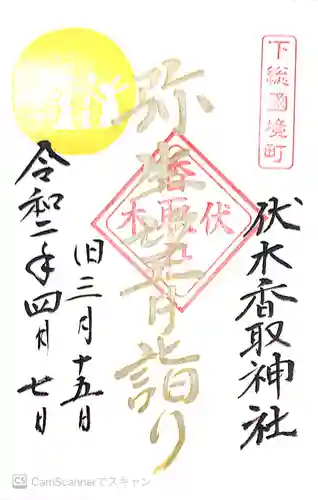 下総國境町
伏木香取神社
弥生望月詣り
旧三月十五日
令和二年四月七日
CS CamScannerでスキャン